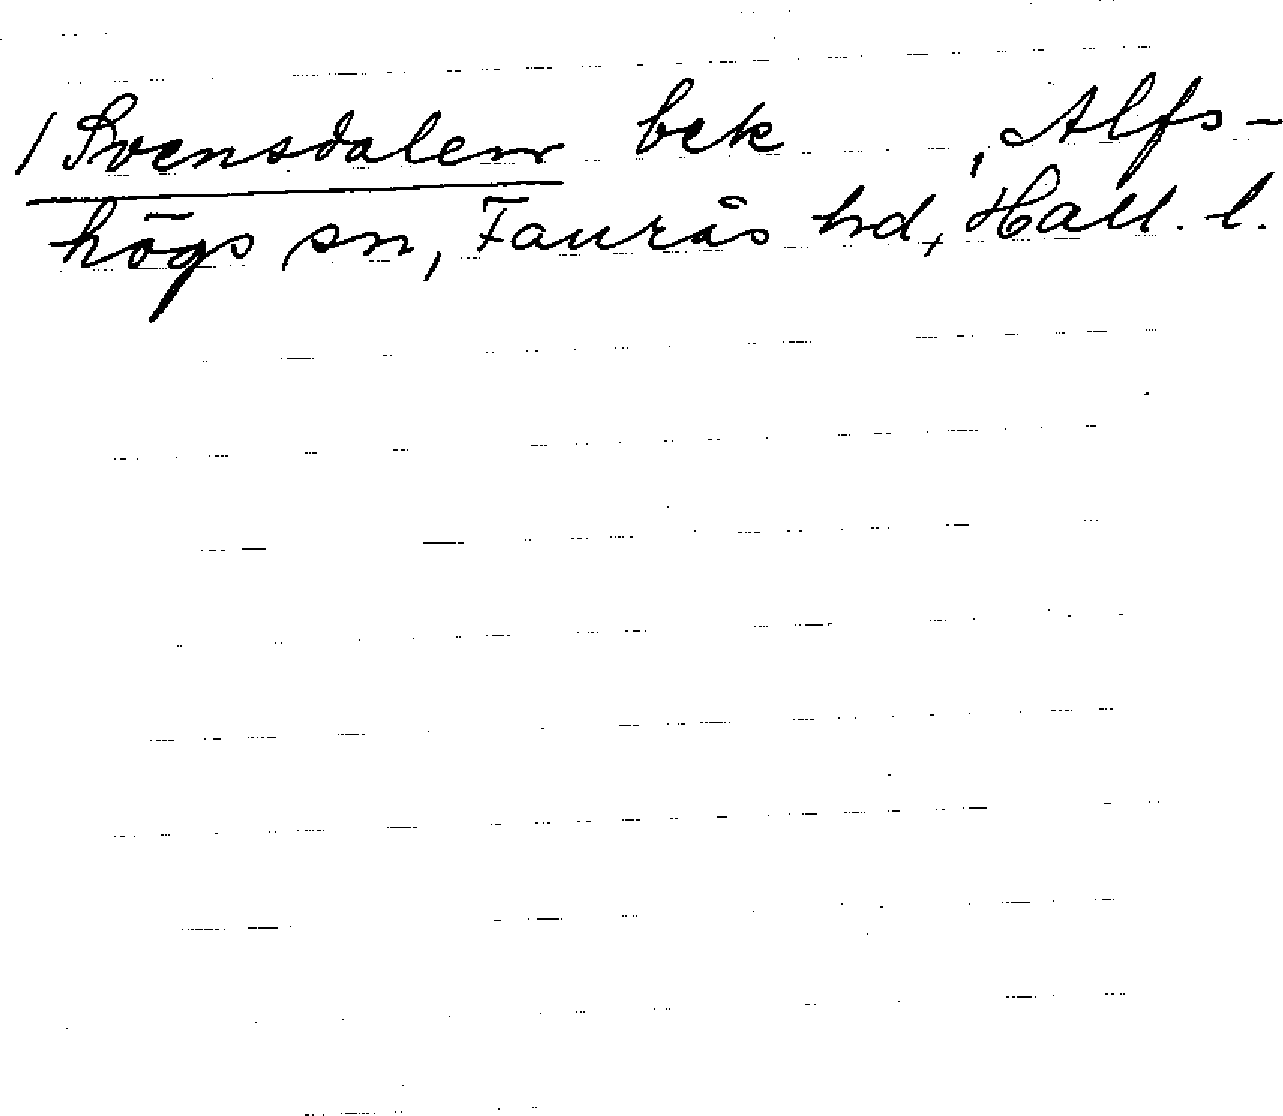 / Svensdalen bek , Alfs-
högs sn, Faurås hd, Hall. l.